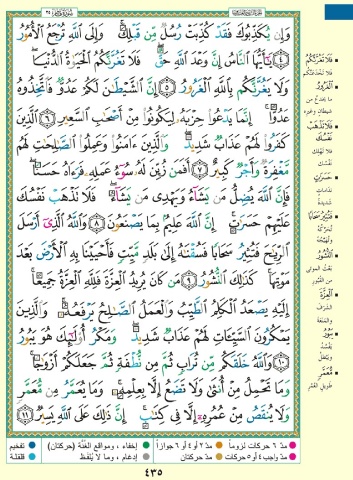 وَإِن يُكَذِّبُوكَ فَقَدْ كُذِّبَتْ رُسُلٌ مِّن قَبْلِكَ ۚ وَإِلَى ٱللَّهِ تُرْجَعُ ٱلْأُمُورُ
٤ يَٰٓأَيُّهَا ٱلنَّاسُ إِنَّ وَعْدَ ٱللَّهِ حَقٌّ ۖ فَلَا تَغُرَّنَّكُمُ ٱلْحَيَوٰةُ ٱلدُّنْيَا ۖ
وَلَا يَغُرَّنَّكُم بِٱللَّهِ ٱلْغَرُورُ ٥ إِنَّ ٱلشَّيْطَٰنَ لَكُمْ عَدُوٌّ فَٱتَّخِذُوهُ
عَدُوًّا ۚ إِنَّمَا يَدْعُوا۟ حِزْبَهُۥ لِيَكُونُوا۟ مِنْ أَصْحَٰبِ ٱلسَّعِيرِ ٦ ٱلَّذِينَ
كَفَرُوا۟ لَهُمْ عَذَابٌ شَدِيدٌ ۖ وَٱلَّذِينَ ءَامَنُوا۟ وَعَمِلُوا۟ ٱلصَّٰلِحَٰتِ لَهُم
مَّغْفِرَةٌ وَأَجْرٌ كَبِيرٌ ٧ أَفَمَن زُيِّنَ لَهُۥ سُوٓءُ عَمَلِهِۦ فَرَءَاهُ حَسَنًا ۖ
فَإِنَّ ٱللَّهَ يُضِلُّ مَن يَشَآءُ وَيَهْدِى مَن يَشَآءُ ۖ فَلَا تَذْهَبْ نَفْسُكَ
عَلَيْهِمْ حَسَرَٰتٍ ۚ إِنَّ ٱللَّهَ عَلِيمٌۢ بِمَا يَصْنَعُونَ ٨ وَٱللَّهُ ٱلَّذِىٓ أَرْسَلَ
ٱلرِّيَٰحَ فَتُثِيرُ سَحَابًا فَسُقْنَٰهُ إِلَىٰ بَلَدٍ مَّيِّتٍ فَأَحْيَيْنَا بِهِ ٱلْأَرْضَ بَعْدَ
مَوْتِهَا ۚ كَذَٰلِكَ ٱلنُّشُورُ ٩ مَن كَانَ يُرِيدُ ٱلْعِزَّةَ فَلِلَّهِ ٱلْعِزَّةُ جَمِيعًا ۚ
إِلَيْهِ يَصْعَدُ ٱلْكَلِمُ ٱلطَّيِّبُ وَٱلْعَمَلُ ٱلصَّٰلِحُ يَرْفَعُهُۥ ۚ وَٱلَّذِينَ
يَمْكُرُونَ ٱلسَّيِّـَٔاتِ لَهُمْ عَذَابٌ شَدِيدٌ ۖ وَمَكْرُ أُو۟لَٰٓئِكَ هُوَ يَبُورُ
١٠ وَٱللَّهُ خَلَقَكُم مِّن تُرَابٍ ثُمَّ مِن نُّطْفَةٍ ثُمَّ جَعَلَكُمْ أَزْوَٰجًا ۚ
وَمَا تَحْمِلُ مِنْ أُنثَىٰ وَلَا تَضَعُ إِلَّا بِعِلْمِهِۦ ۚ وَمَا يُعَمَّرُ مِن مُّعَمَّرٍ
وَلَا يُنقَصُ مِنْ عُمُرِهِۦٓ إِلَّا فِى كِتَٰبٍ ۚ إِنَّ ذَٰلِكَ عَلَى ٱللَّهِ يَسِيرٌ ١١
فَلَا تَغُرَّنَّكُمُ
ٱلْغَرُورُ
فَلَا تَذْهَبْ
نَفْسُكَ
حَسَرَٰتٍ
فَتُثِيرُ سَحَابًا
ٱلنُّشُورُ
ٱلْعِزَّةَ
يَبُورُ
مُّعَمَّرٍ
طويل العُمُر
مدّ ٦ حركات لزوماً
مدّ ٢ أو ٤ أو ٦ جوازاً
إخفاء، ومواقع الغُنَّة (حركتان)
تفخيم
مدّ واجب ٤ أو ٥ حركات
مدّ حركتان
إدغام، وما لا يُلفَظ
قلقلة
٤٣٥